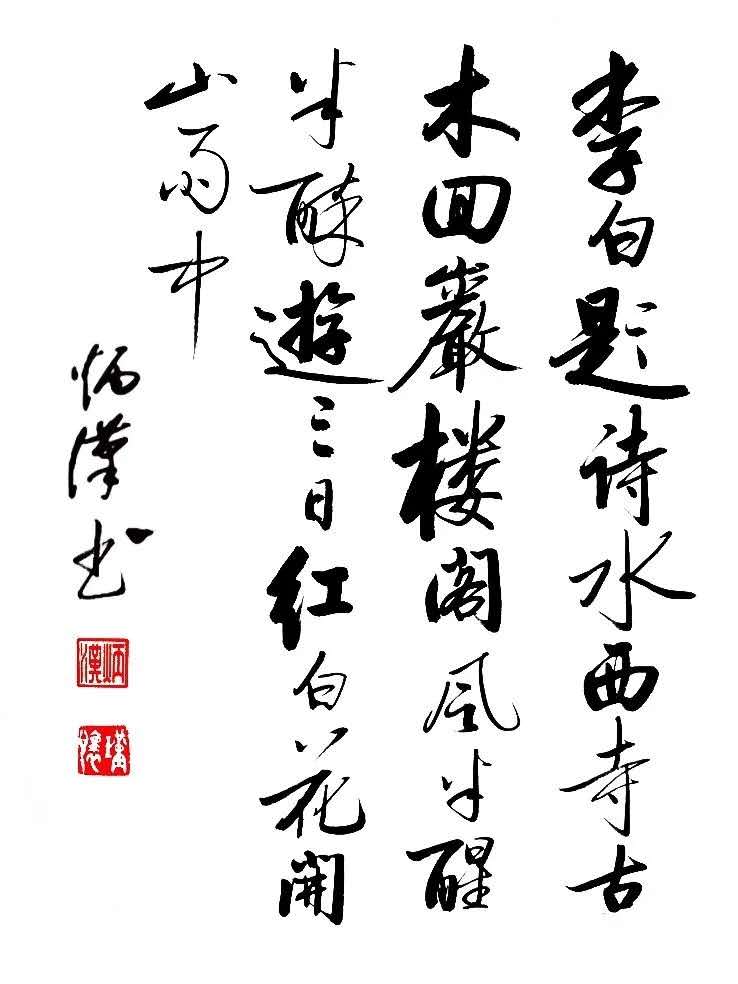 李白题诗水西寺古
木回巖楼阁风半醒
半醉遊三日红白花開
山雨中
炳漢书
炳漢